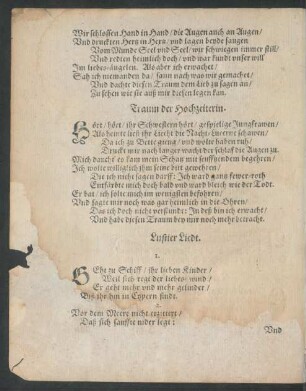 Wir schlossen Hand in Hand / die Augen auch an Augen /
Vnd druckten Hertz in Hertz / vnd lagen beyde saugen
Vom Munde Seel vnd Seel / wir schwiegen immer still /
Vnd redten heimlich doch / vnd war kundt vnser will
Im liebes-angelen. Als aber ich erwachet /
Sah ich niemanden da / sann nach was wir gemachet /
Vnd dachte diesen Traum dem lieb zu sagen an /
Zu sehen wie sie auß mir diesen legen kan.
Traum der Hochzeiterin.
HÖrt / hört / ihr Schwestern hört / gespielige Jungfrawen /
Als heute ließ ihr Liecht die Nacht-Lucerne schawen /
Da ich zu Bette gieng / vnd wolte haben ruh /
Druckt mir nach langer wacht der schlaf die Augen zu.
Mich daucht es kam mein Schatz mit seufftzendem begehren /
Ich wolte williglich ihm seine bitt gewehren /
Die ich nicht sagen darff: Ich ward gantz fewer-roth
Entfärbte mich doch bald vnd ward bleich wie der Todt.
Er bat / ich solte mich im wenigsten befohren /
Vnd sagte mir noch was gar heimlich in die Ohren /
Das ich doch nicht verstund: In deß bin ich erwacht /
Vnd habe diesen Traum bey mir noch mehr betracht.
Lustier Liedt.
1.
GEht zu Schiff / ihr lieben Kinder /
Weil sich regt der liebes-wind /
Er geht mehr vnd mehr gelinder /
Biß ihr hin in Cypern sindt.
2.
Vor dem Meere nicht erzittert /
Daß sich sanffte nider legt:
Vnd